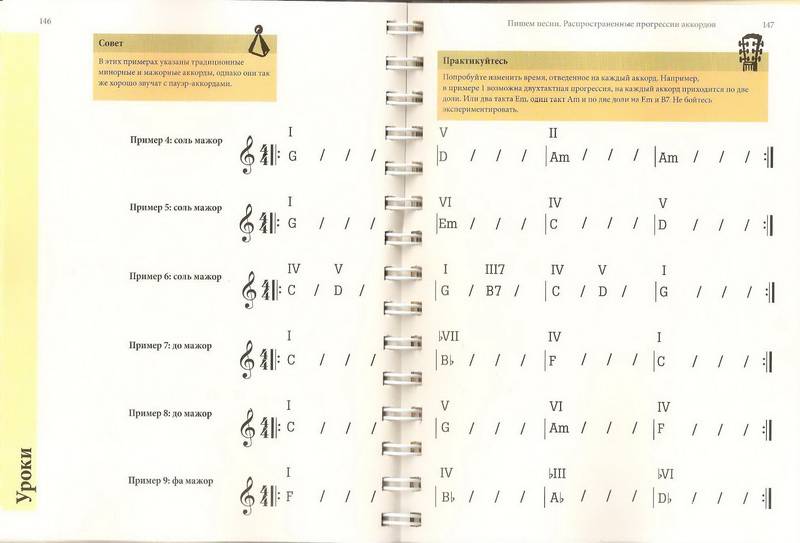 146
Совет
В этих примерах указаны традиционные
минорные и мажорные аккорды, однако они так
же хорошо звучат с пауэр-аккордами.
Пример 4: соль мажор
I
4/4 G / / /
Пример 5: соль мажор
I
4/4 G / / /
Пример 6: соль мажор
IV V
4/4 C / D /
Пример 7: до мажор
I
4/4 C / / /
Пример 8: до мажор
I
4/4 C / / /
Пример 9: фа мажор
I
4/4 F / / /
Уроки
Пишем песни. Распространенные прогрессии аккордов 147
Практикуйтесь
Попробуйте изменить время, отведенное на каждый аккорд. Например,
в примере 1 возможна двухтактная прогрессия, на каждый аккорд приходится по две
доли. Или два такта Em, один такт Am и по две доли на Em и B7. Не бойтесь
экспериментировать.
V II
D / / / Am / / / Am / / /
VI IV V
Em / / / C / / / D / / /
I III7 IV V I
G / B7 / C / D / G / / /
♭VII IV I
B♭ / / / F / / / C / / /
V VI IV
G / / / Am / / / F / / /
IV ♭III ♭VI
B♭ / / / A♭ / / / D♭ / / /